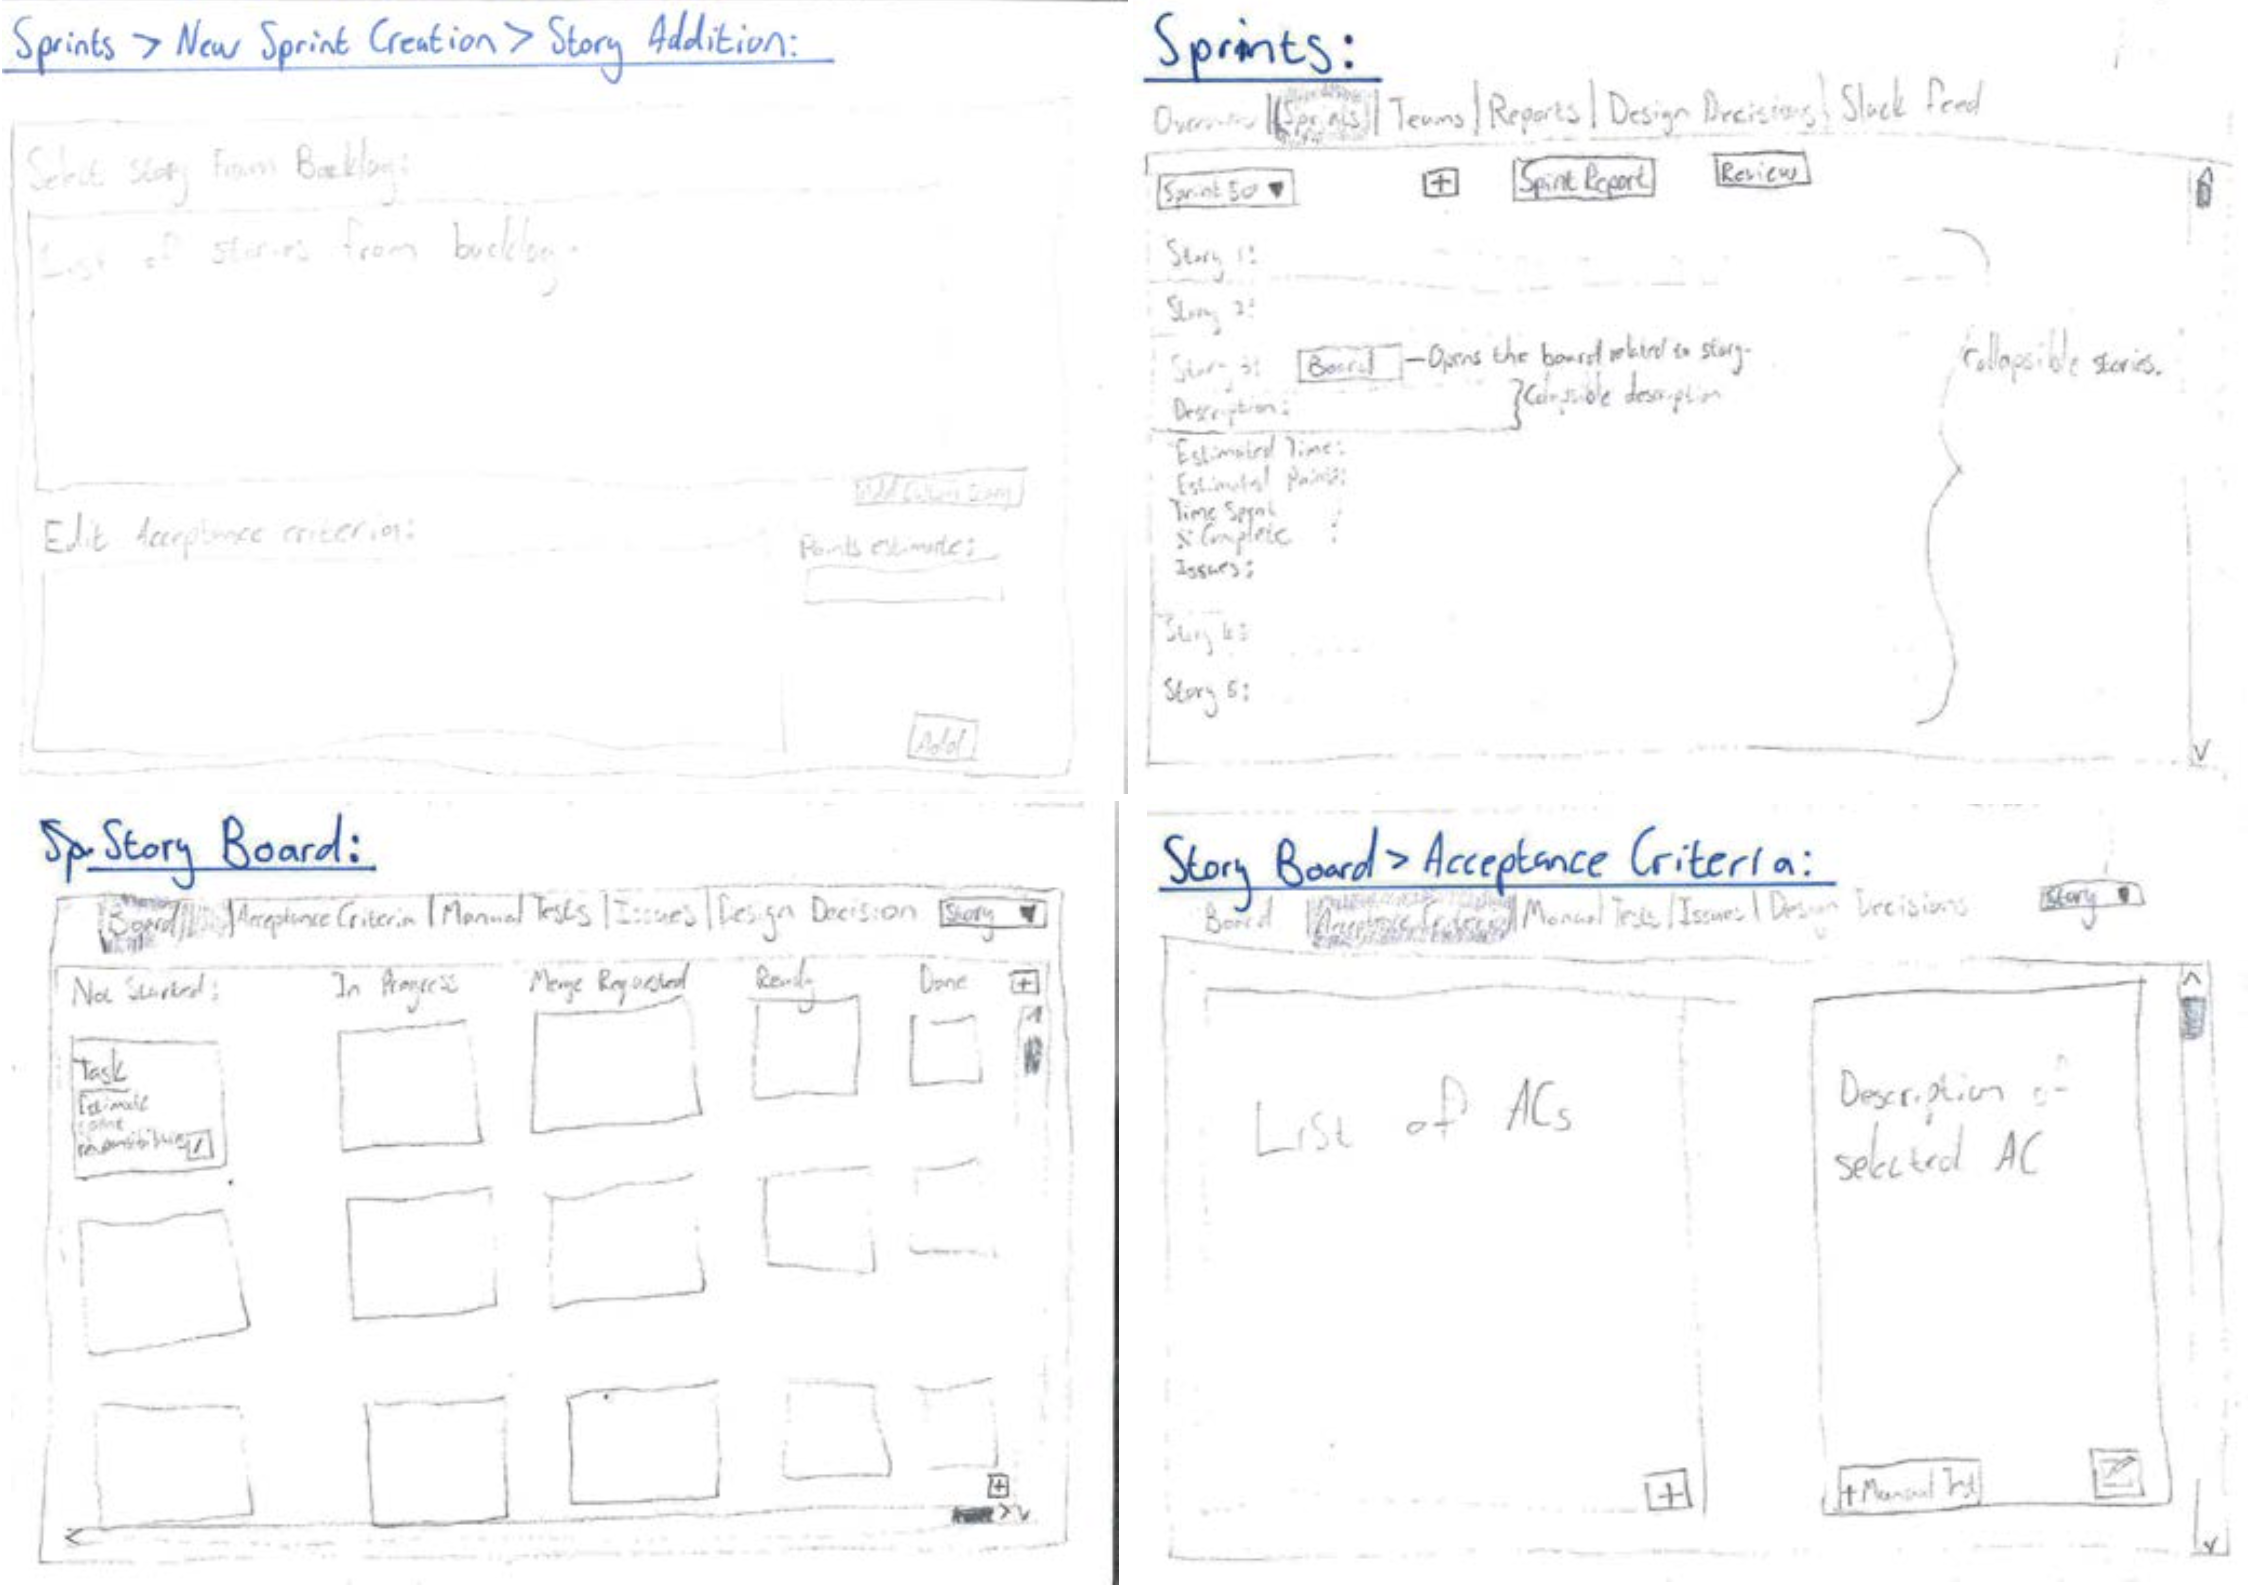 Sprints > New Sprint Creation > Story Addition:
Select Story From Backlog:
List of stories from backlog.
Add Custom Story
Edit Acceptance criteria:
Points estimate:
Add
Sprints:
Overview | Sprints | Teams | Reports | Design Decisions | Slack Feed
Sprint 50 ▼ + Spint Report Review
Story 1:
Story 2:
Story 3: Board — Opens the board related to story.
Description: } description
Collapsible stories.
Estimated Time:
Estimated Points:
Time Spent
% Complete :
Issues:
Story 4:
Story 5:
Sp. Story Board:
Board | Acceptance Criteria | Manual Tests | Issues | Design Decision Story ▼
Not Started: In Progress Merge Requested Ready Done +
Task
Estimate
+
< > v
Story Board > Acceptance Criteria:
Board | Acceptance Criteria | Manual Tests | Issues | Design Decisions Story ▼
List of ACs
Description of
selected AC
+
+ Manual Test